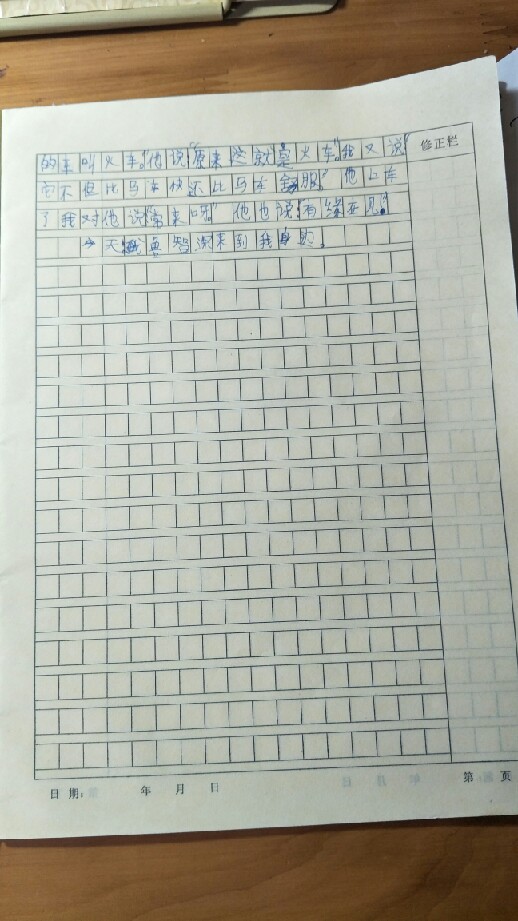 修正栏
的车叫火车。”他说“原来这就是火车。”我又说“
它不但比马车快还比马车舒服。”他上车
了我对他说“常来呀。”他也说“有缘再见。”
今天我真智来到我身边。
日期: 年 月 日
第 页